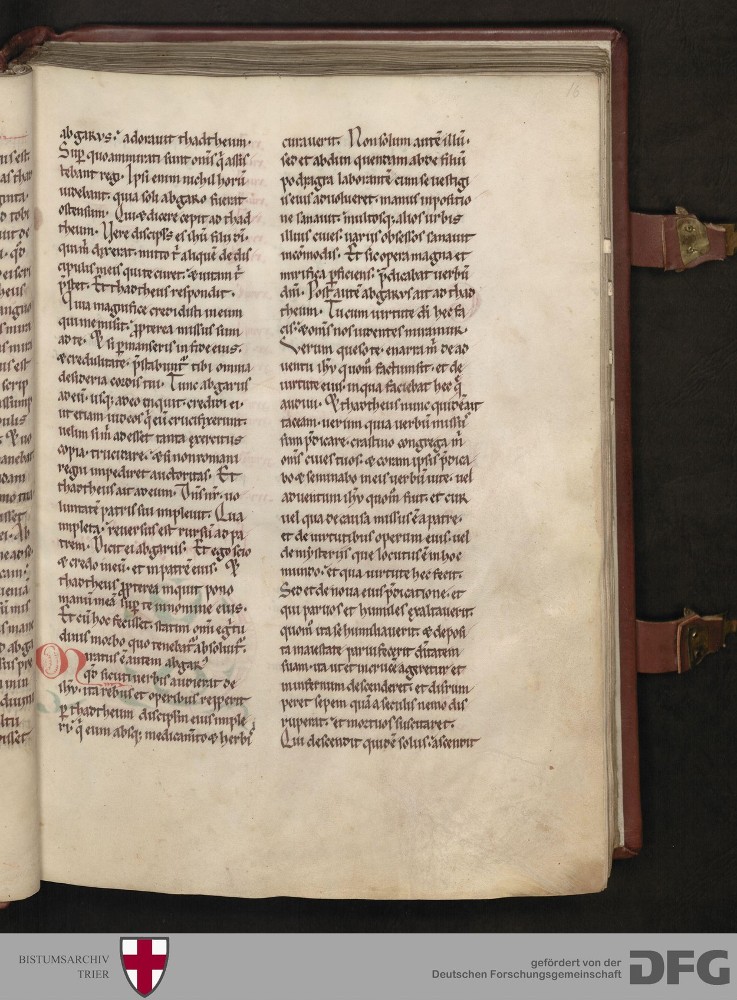 16
abgarus. adorauit thadtheum.
Sup̄ quo ammirati sunt om̄s q̄ assis
tebant regi. Ipsi enim nichil horū
uidebant. quia soli abgaro fuerat
ostensum. Qui & dicere cepit ad thad
theum. Uere discipl̄s es ih̄u filii dī.
qui m̄ dixerat. mitto t̄ aliquē de dis
cipulis meis qui te curet. & uitam t̄
p̄stet. Et thadtheus respondit.
Quia magnifice credidisti in eum
qui me misit. ꝓpterea missus sum
ad te. & si ꝑmanseris in fide eius.
& credulitate. p̄stabunt᷑ tibi omnia
desideria cordis tui. Tunc abgarus
ad eū. usq; adeo inquit. credidi ei.
ut etiam iudeos q̄ eū crucifixerunt.
uelim si m̄ adesset tanta exercitus
copia. trucidare. & si non romani
regni impediret auctoritas. Et
thadtheus ait ad eum. Dn̄s nr̄. uo
luntatē patris sui impleuit. Qua
impleta. reuersus est rursū ad pa
trem. Dicit ei abgarus. Et ego scio
& credo in eū. et in patrē eius. &
thadtheus ꝓpterea inquit pono
manū meā sup̄ te in nomine eius.
Et cū hoc fecisset. statim om̄i egr̄tu
dinis morbo quo tenebat᷑ absolut᷑.
Miratus ē autem abgar᷒
qd̄ sicuti uerbis audierat de
ih̄u. ita rebus et operibus repperit
ꝑ thadtheum discipl̄m eius imple
ri. q̄ eum absq; medicam̄to & herbis
curauerit. Non solum autē illū.
sed et abdun quendam abde filiū
podragra laborantē cum se uestigi
is eius aduolueret. manus inpositio
ne sanauit. multosq; alios urbis
illius ciues. uariis obsessos sanauit
incōmodis. Et sic opera magna et
mirifica ꝑficiens. p̄dicabat uerbū
dn̄i. Post autē abgarus ait ad thad
theum. Tu cum uirtute dī hec fa
cis. & om̄s nos uidentes miramur.
Uerum queso te. enarra m̄ de ad
uentu ih̄u quom̄ factum sit. et de
uirtute eius. in qua faciebat hec q̄
audiui. & thadtheus nunc quidē ait
taceam. uerum quia uerbū missus
sum p̄dicare. crastino congrega m̄
om̄s ciues tuos. & coram ipsis p̄dica
bo & seminabo in eis uerbū uite. uel
aduentum ih̄u quom̄ fuit. et cur
uel qua de causa missus ē a patre.
et de uirtutibus operum eius. uel
de mysteriis que locutus ē in hoc
mundo. et qua uirtute hec fecit.
Sed et de noua eius p̄dicatione. et
qui paruos et humiles exaltauerit.
quom̄ ita se humiliauerit. & deposi
ta maiestate parui fecerit diītatem
suam. ita ut et in cruce ageretur et
in infernum descenderet. et disrum
peret sepem quā a seculis nemo dis
ruperat. et mortuos suscitaret.
Qui descendit quidē solus. ascendit
BISTUMSARCHIV
TRIER
gefördert von der
Deutschen Forschungsgemeinschaft
DFG